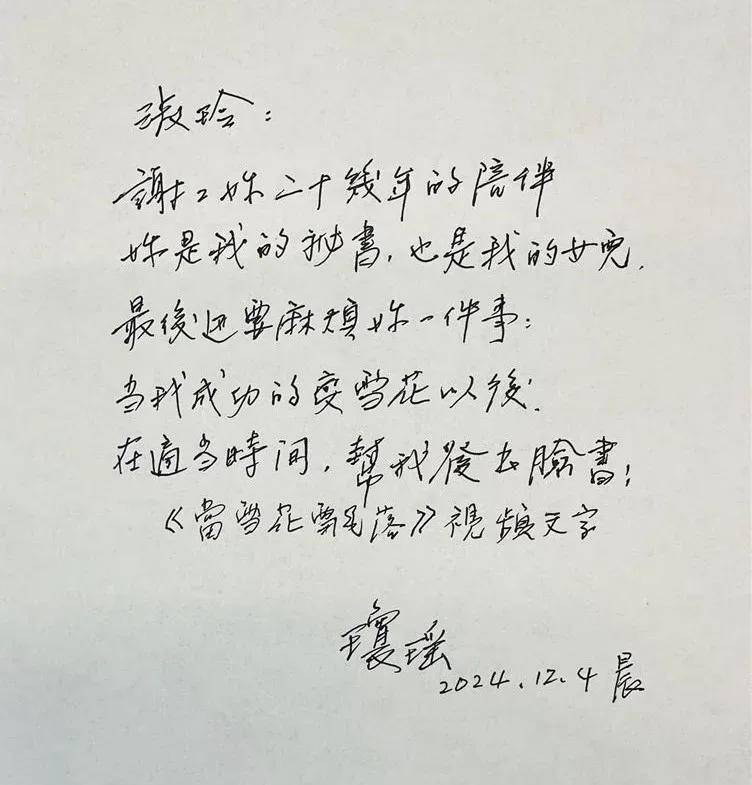 張玲：
謝謝妳二十幾年的陪伴
妳是我的秘書，也是我的女兒．
最後還要麻煩妳一件事：
当我成功的变雪花以後．
在適当時间，幫我發出臉書！
《當雪花飄落》視頻文字
瓊瑤
2024.12.4 晨